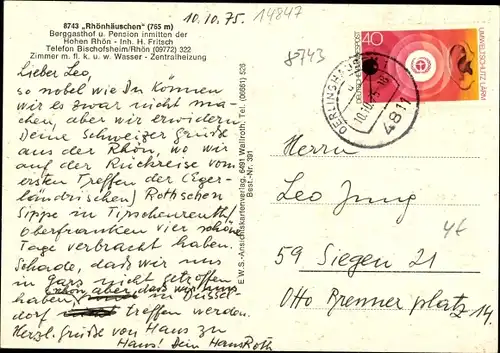 10.10.75. 14847
8743 „Rhönhäuschen" (765 m)
Berggasthof u. Pension inmitten der
Hohen Rhön - Inh. H. Fritsch
Telefon Bischofsheim/Rhön (09772) 322
Zimmer m. fl. k. u. w. Wasser - Zentralheizung
Lieber Leo,
so nobel wie Du können
wir es zwar nicht ma-
chen, aber wir erwidern
Deine Schweizer Grüße
aus der Rhön, wo wir
auf der Rückreise vom
ersten Treffen der (Eger-
ländrischen) Rothschen
Sippe in Tipschenreuth/
Oberfranken vier schöne
Tage verbracht haben.
Schade, daß wir uns
in Gars nicht getroffen
haben, in Düssel-
dorf treffen werden.
Herzl. Grüße von Haus zu
Haus! Dein Hans Roth
E.W.S.-Ansichtskartenverlag, 6491 Wallroth, Tel. (06661) 526
Best.-Nr. 391
8743
DEUTSCHE BUNDESPOST
40
UMWELTSCHUTZ: LÄRM
OERLINGHAUSEN
10.10.75
4811
Herrn
Leo Jung
4€
59 Siegen 21
Otto Brenner platz 14.